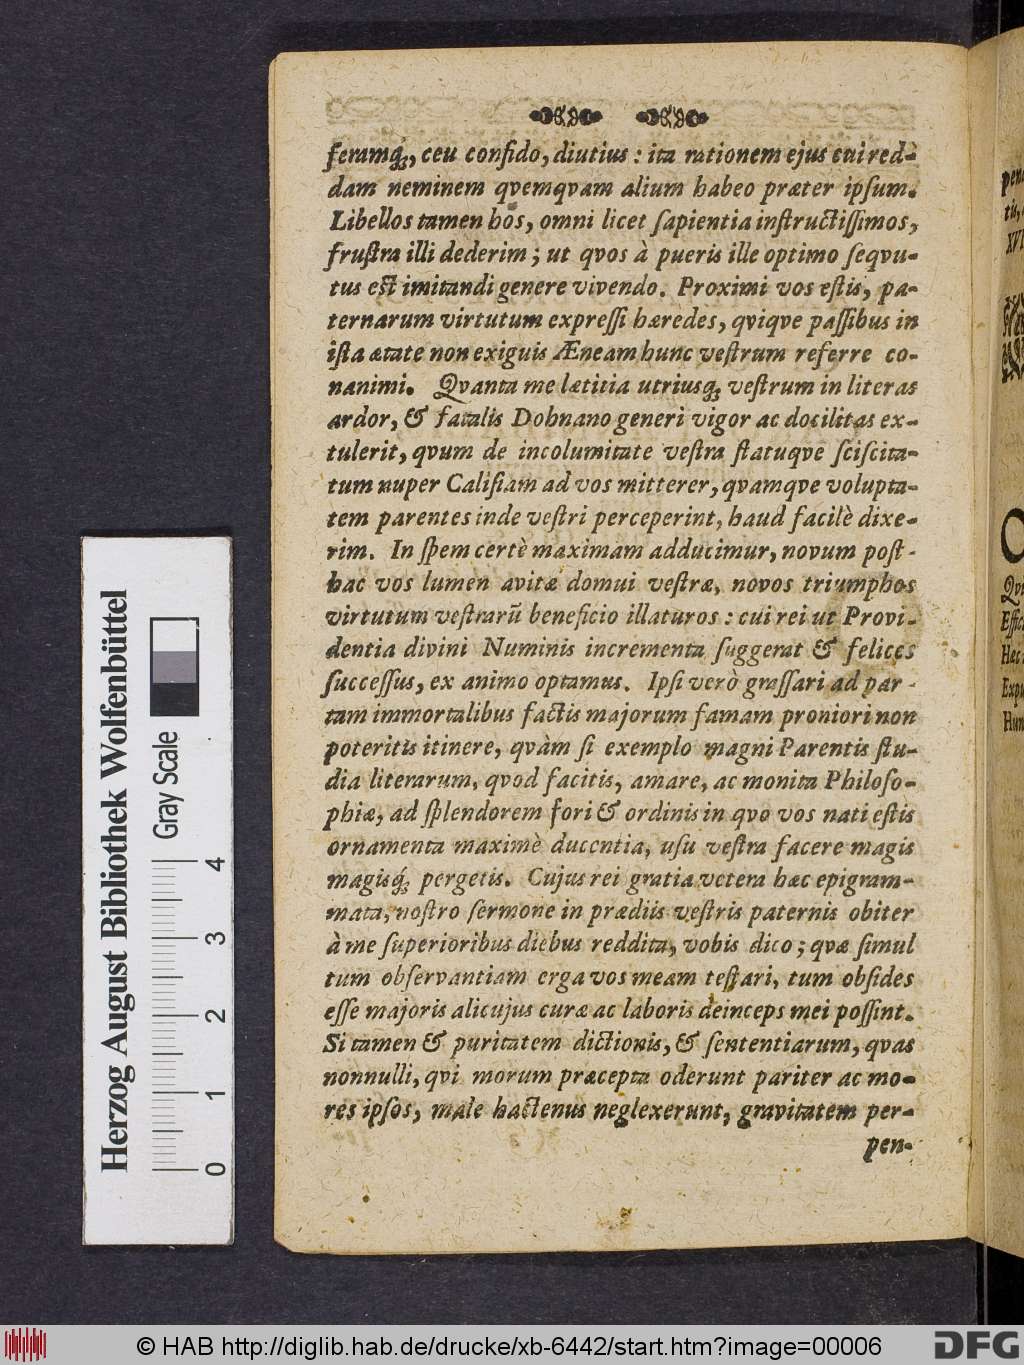 feramq́ꝫ, ceu confido, diutius: ita rationem ejus cui red-
dam neminem qvemqvam alium habeo præter ipſum.
Libellos tamen hos, omni licet ſapientia inſtructiſſimos,
fruſtra illi dederim; ut qvos à pueris ille optimo ſeqvu-
tus eſt imitandi genere vivendo. Proximi vos eſtis, pa-
ternarum virtutum expreſſi hæredes, qviqve paſſibus in
iſta ætate non exiguis Æneam hunc veſtrum referre co-
nanimi. Qvanta me lætitia utriusq́ꝫ veſtrum in literas
ardor, & fatalis Dohnano generi vigor ac docilitas ex-
tulerit, qvum de incolumitate veſtra ſtatuqve ſciſcita-
tum nuper Caliſiam ad vos mitterer, qvamqve volupta-
tem parentes inde veſtri perceperint, haud facilè dixe-
rim. In ſpem certè maximam adducimur, novum poſt-
hac vos lumen avitæ domui veſtræ, novos triumphos
virtutum veſtrarũ beneficio illaturos: cui rei ut Provi-
dentia divini Numinis incrementa ſuggerat & felices
ſucceſſus, ex animo optamus. Ipſi verò graſſari ad par-
tam immortalibus factis majorum famam proniori non
poteritis itinere, qvàm ſi exemplo magni Parentis ſtu-
dia literarum, qvod facitis, amare, ac monita Philoſo-
phiæ, ad ſplendorem fori & ordinis in qvo vos nati eſtis
ornamenta maximè ducentia, uſu veſtra facere magis
magisq́ꝫ pergetis. Cujus rei gratia vetera hæc epigram-
mata, noſtro ſermone in prædiis veſtris paternis obiter
à me ſuperioribus diebus reddita, vobis dico; qvæ ſimul
tum obſervantiam erga vos meam teſtari, tum obſides
eſſe majoris alicujus curæ ac laboris deinceps mei poſſint.
Si tamen & puritatem dictionis, & ſententiarum, qvas
nonnulli, qvi morum præcepta oderunt pariter ac mo-
res ipſos, male hactenus neglexerunt, gravitatem per-
pen-
Herzog August Bibliothek Wolfenbüttel
Gray Scale
0 1 2 3 4
© HAB http://diglib.hab.de/drucke/xb-6442/start.htm?image=00006
DFG